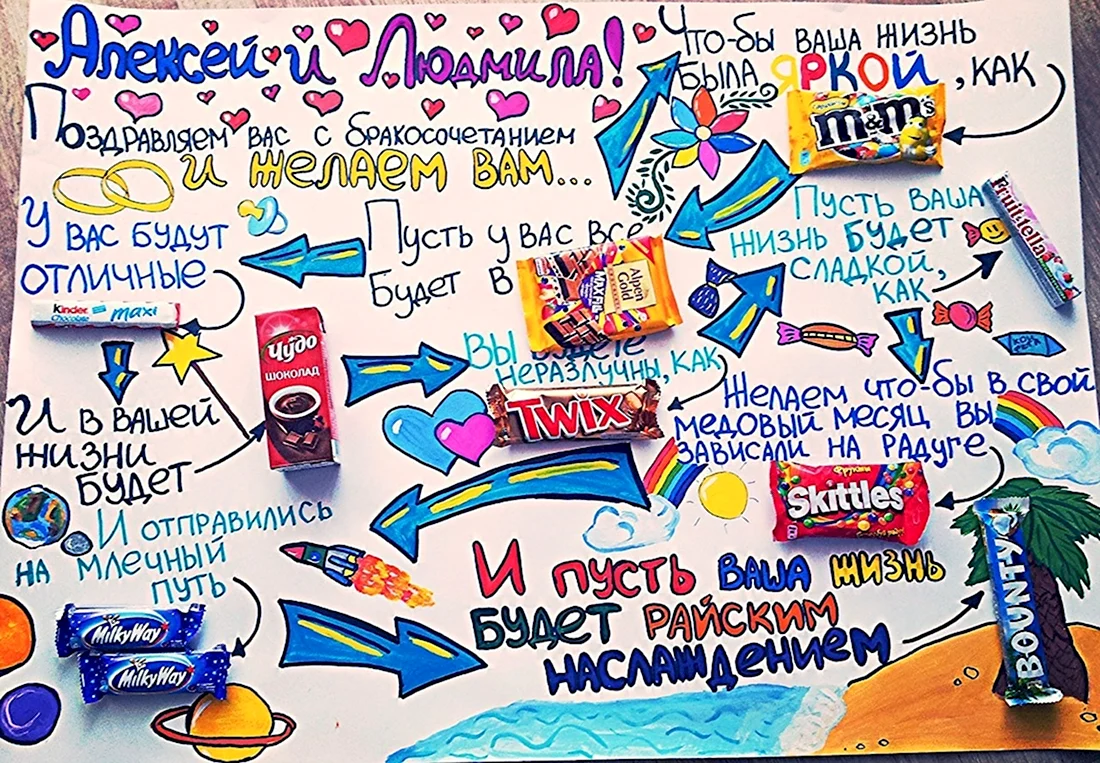 Алексей и Людмила!
Поздравляем вас с бракосочетанием
и желаем вам...
Что-бы ваша жизнь
была яркой, как
m&m's
Пусть у вас все
будет в
Alpen Gold
MAX FUN
У вас будут
отличные
Kinder
Chocolate
maxi
И в вашей
жизни
будет
Чудо
ШОКОЛАД
Вы будете
неразлучны, как
TWIX
Пусть ваша
жизнь будет
сладкой,
как
Fruittella
Желаем что-бы в свой
медовый месяц вы
зависали на радуге
Фрукты
Skittles
И отправились
на млечный
путь
MilkyWay
MilkyWay
И пусть ваша жизнь
будет райским
наслаждением
BOUNTY